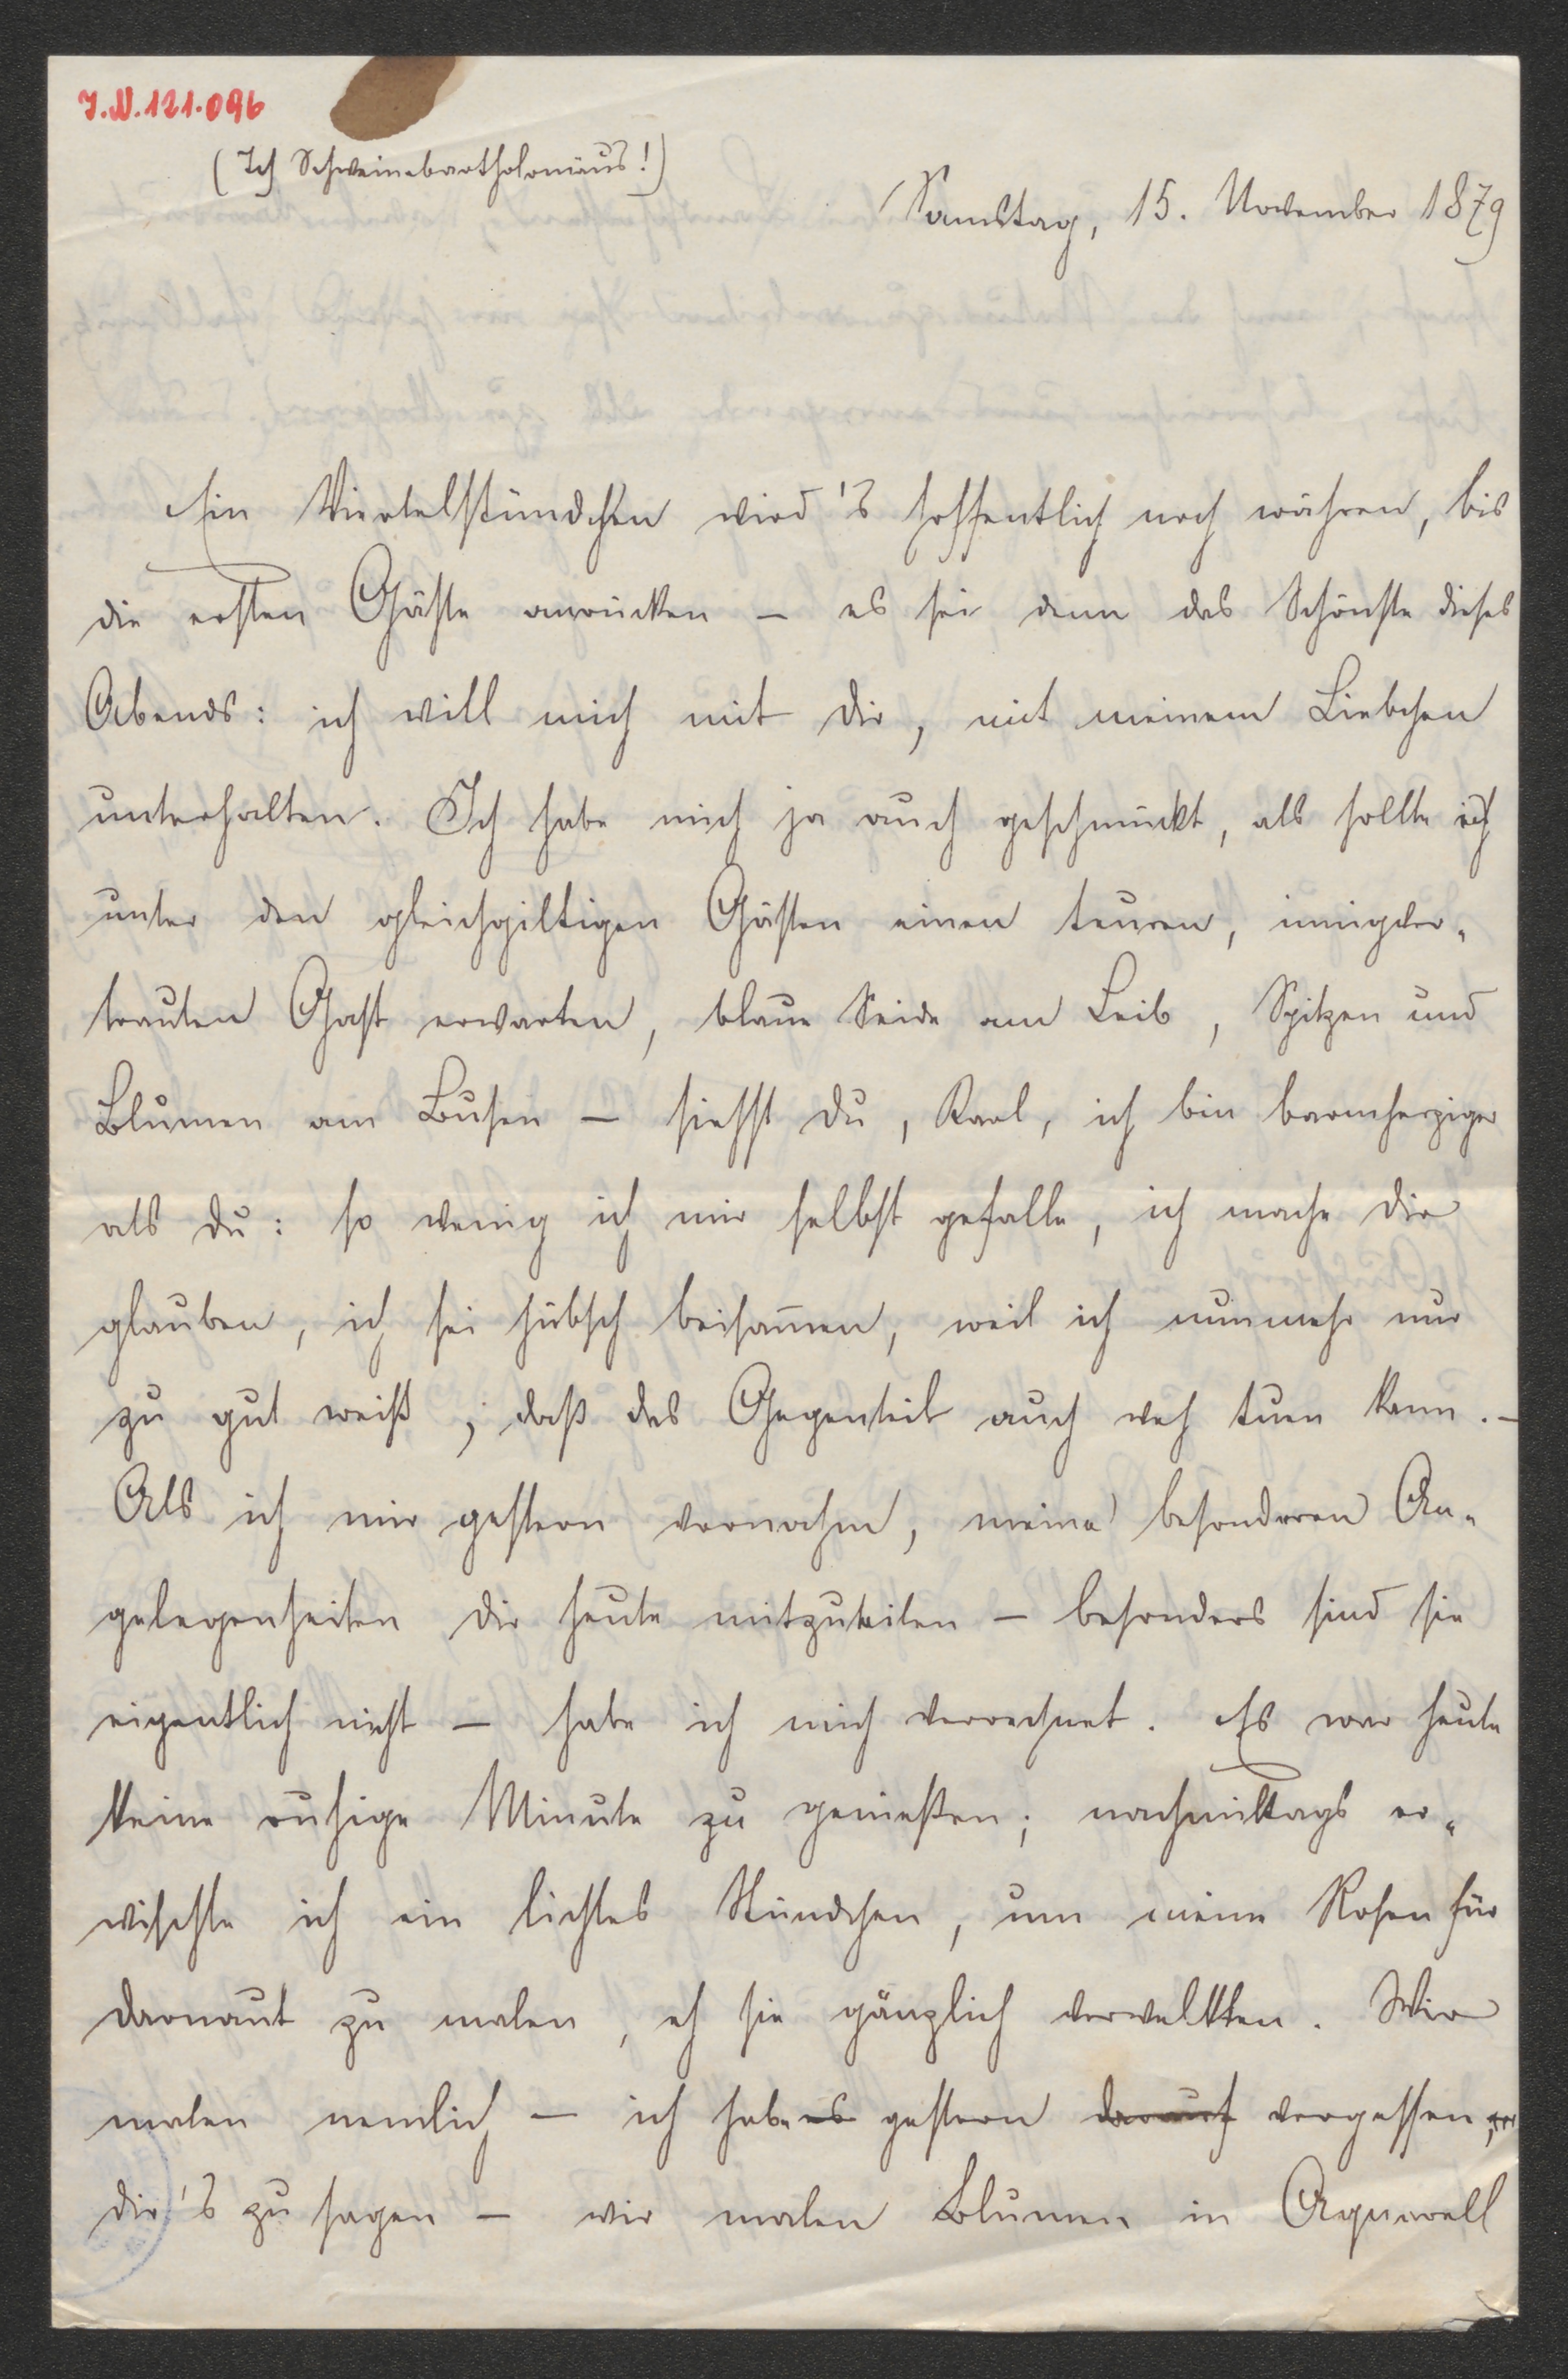 J.N.121.096
(Ich Schweinebartholomäus!)
Samstag, 15. November 1879
Ein Viertelstündchen wird's hoffentlich noch währen, bis
die ersten Gäste anrücken – es sei denn das Schönste dieses
Abends: ich will mich mit dir, mit meinem Liebchen
unterhalten. Ich habe mich ja auch geschmückt, als sollte ich
unter den gleichgiltigen Gästen einen teuren, innigver-
trauten Gast erwarten, blaue Seide am Leib, Spitzen und
Blumen am Busen – siehst du, Karl, ich bin barmherziger
als du: so wenig ich mir selbst gefalle, ich mache dir
glauben, ich sei hübsch beisam̅en, weil ich nunmehr nur
zu gut weiß, daß das Gegenteil auch weh tuen kann. –
Als ich mir gestern vornahm, meine besonderen An-
gelegenheiten dir heute mitzuteilen – besonders sind sie
eigentlich nicht – habe ich mich verrechnet. Es war heute
keine ruhige Minute zu genießen; nachmittags er-
wischte ich ein lichtes Stündchen, um meine Rosen für
Darnaut zu malen, eh sie gänzlich verwelkten. Wir
malen nemlich – ich habe es gestern darauf vergessen,
dir's zu sagen – wir malen Blumen in Aquarell